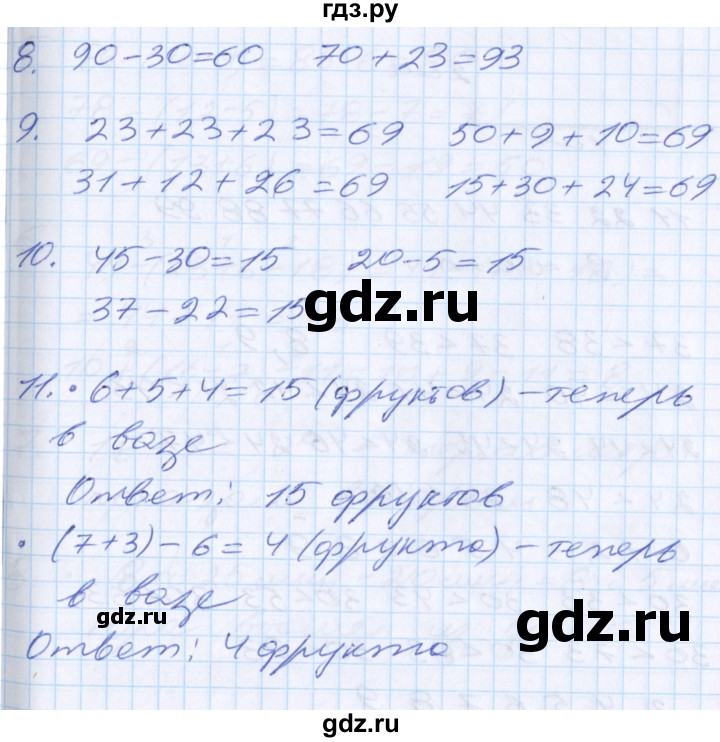 гдз.ру
8. 90-30=60 70+23=93
9. 23+23+23=69 50+9+10=69
31+12+26=69 15+30+24=69
10. 45-30=15 20-5=15
37-22=15
gdz.ru
11. • 6+5+4=15 (фруктов) - теперь
в вазе
Ответ: 15 фруктов
• (7+3)-6=4 (фрукта) - теперь
в вазе
gdz.ru
gdz.ru
Ответ: 4 фрукта
gdz.ru